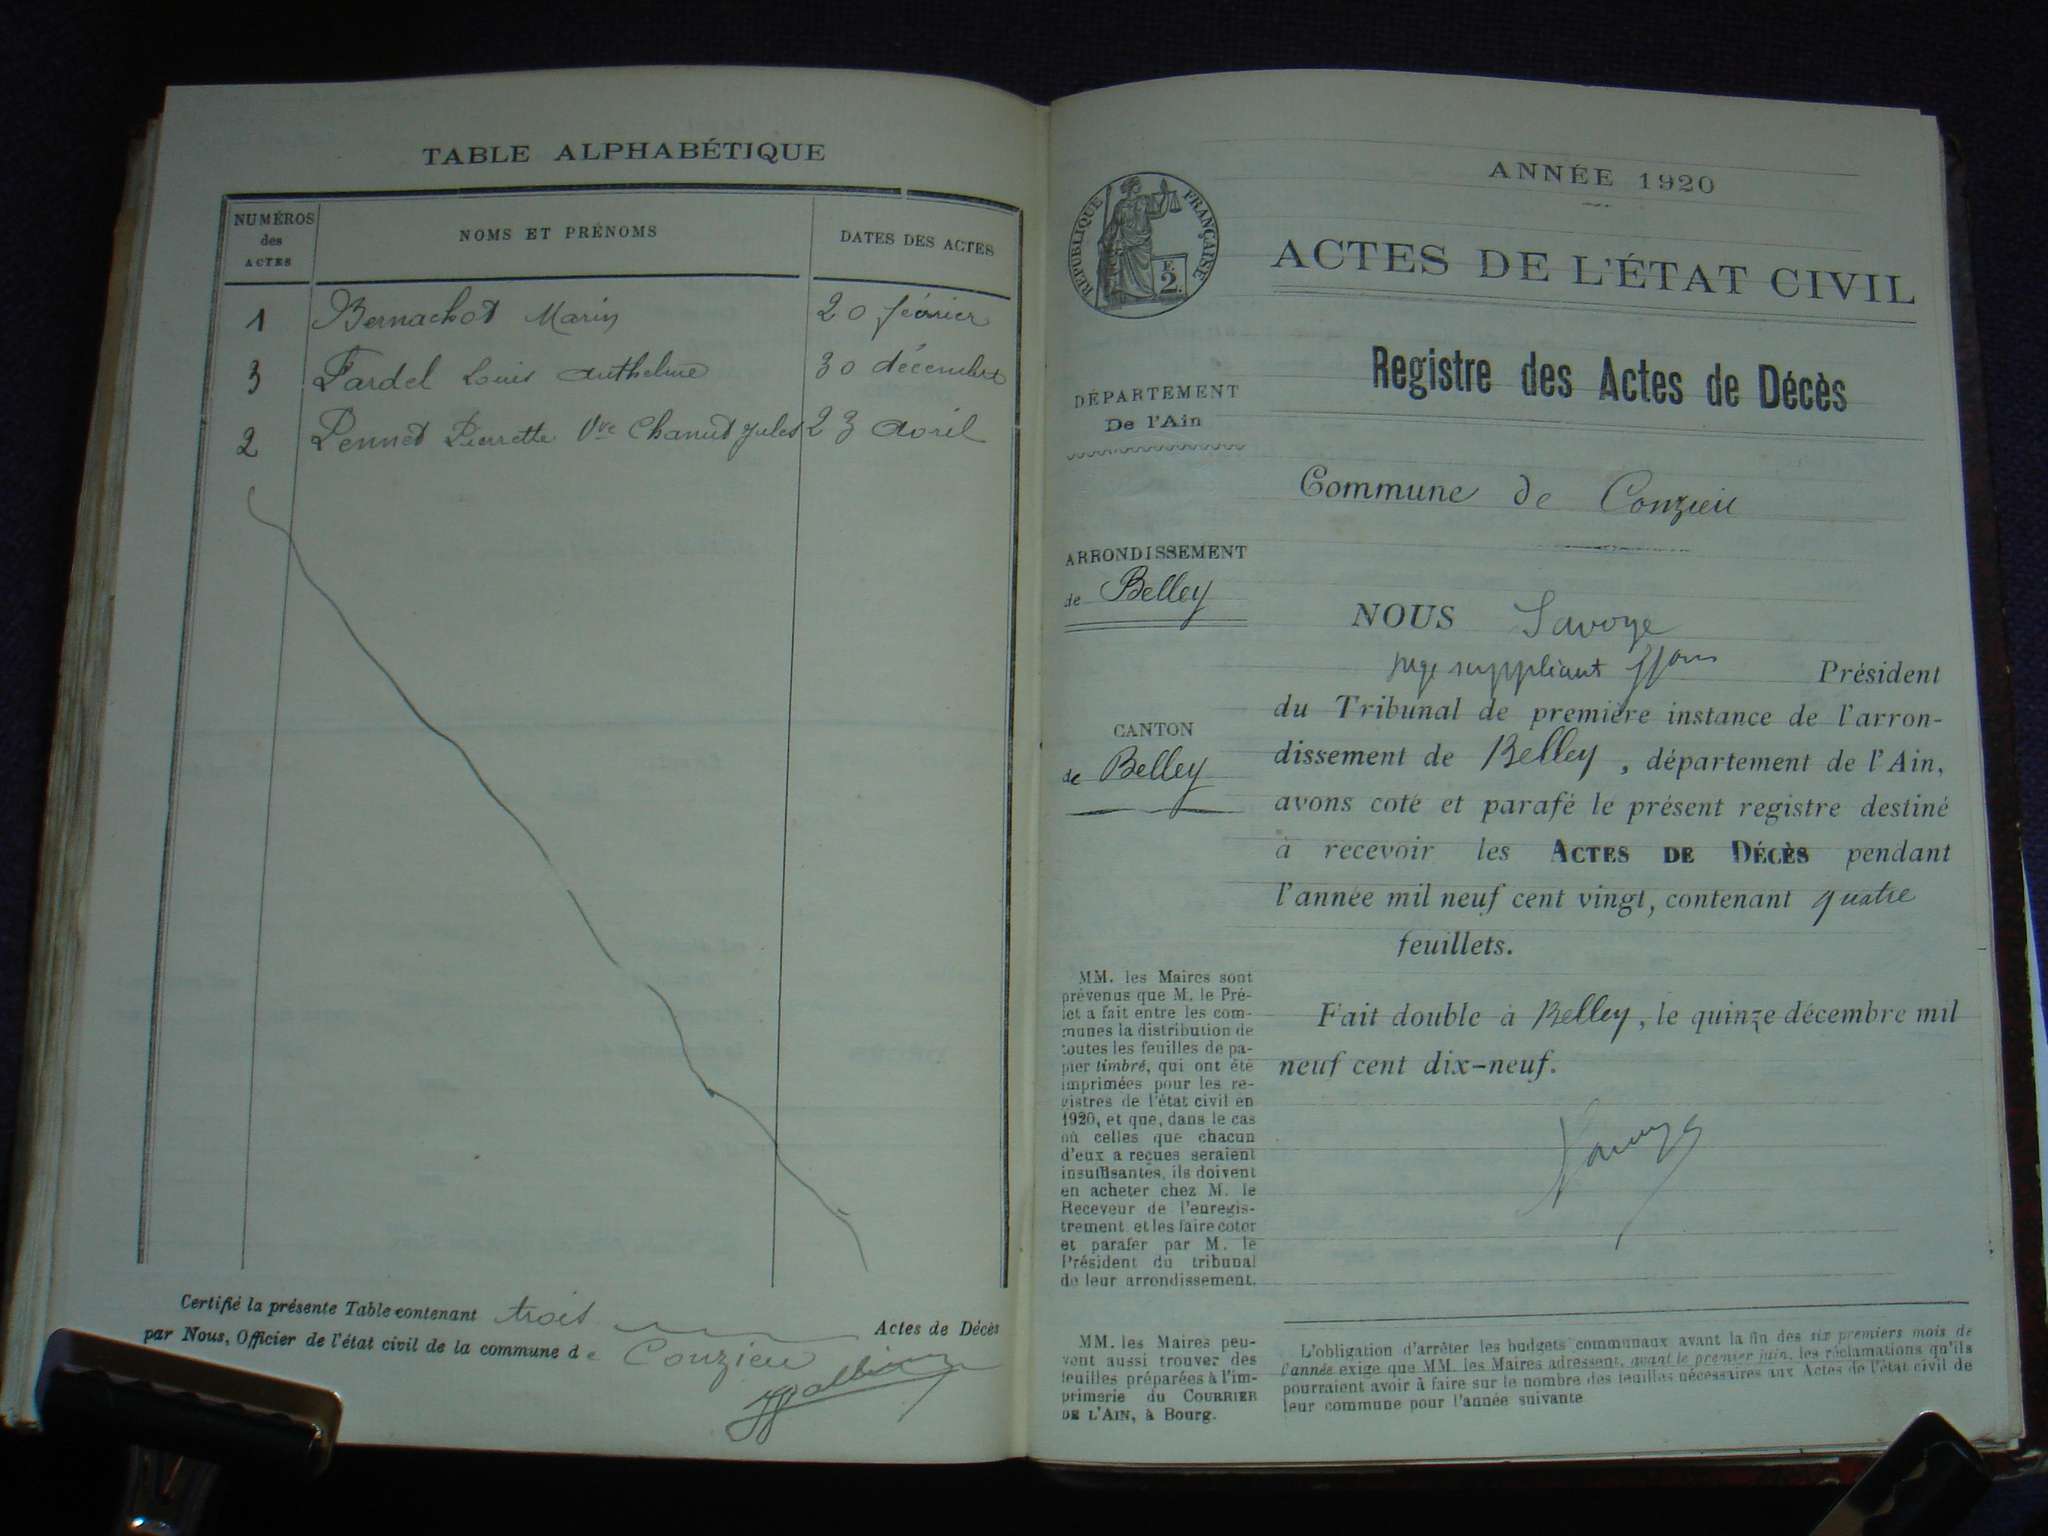 TABLE ALPHABÉTIQUE
NUMÉROS des ACTES
NOMS ET PRÉNOMS
DATES DES ACTES
1 Bernachot Marin 20 février
3 Fardel Louis Anthelme 30 décembre
2 Pennet Pierrette Vve Chanut Jules 23 avril
Certifié la présente Table contenant trois Actes de Décès
par Nous, Officier de l'état civil de la commune de Conzieu
ANNÉE 1920
RÉPUBLIQUE FRANÇAISE
F. 2.
ACTES DE L'ÉTAT CIVIL
Registre des Actes de Décès
DÉPARTEMENT
De l'Ain
Commune de Conzieu
ARRONDISSEMENT
de Belley
CANTON
de Belley
NOUS Savoye
juge suppléant Président
du Tribunal de première instance de l'arron-
dissement de Belley, département de l'Ain,
avons coté et parafé le présent registre destiné
à recevoir les ACTES DE DÉCÈS pendant
l'année mil neuf cent vingt, contenant quatre
feuillets.
Fait double à Belley, le quinze décembre mil
neuf cent dix-neuf.
Savoye
MM. les Maires sont
prévenus que M. le Pré-
fet a fait entre les com-
munes la distribution de
toutes les feuilles de pa-
pier timbré, qui ont été
imprimées pour les re-
gistres de l'état civil en
1920, et que, dans le cas
où celles que chacun
d'eux a reçues seraient
insuffisantes, ils doivent
en acheter chez M. le
Receveur de l'enregis-
trement et les faire coter
et parafer par M. le
Président du tribunal
de leur arrondissement.
MM. les Maires peu-
vent aussi trouver des
feuilles préparées à l'im-
primerie du COURRIER
DE L'AIN, à Bourg.
L'obligation d'arrêter les budgets communaux avant la fin des six premiers mois de
l'année exige que MM. les Maires adressent, avant le premier juin, les réclamations qu'ils
pourraient avoir à faire sur le nombre des feuilles nécessaires aux Actes de l'état civil de
leur commune pour l'année suivante